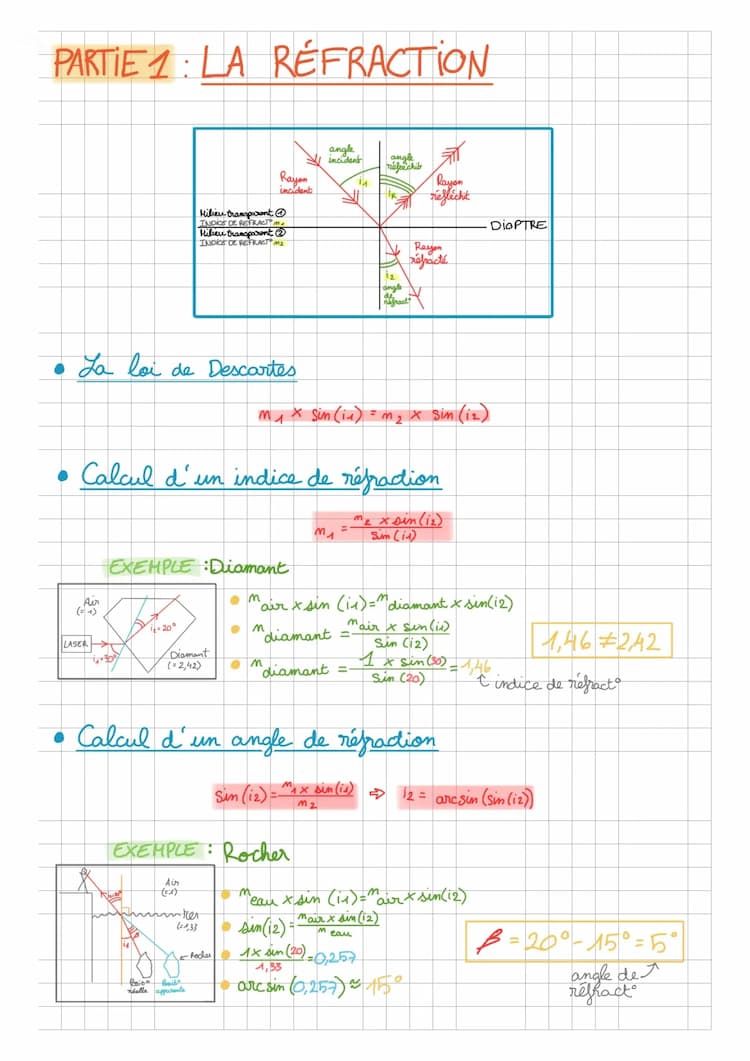 PARTIE 1 : LA RÉFRACTION
angle incident
angle réfléchit
Rayon incident
i1
iR
Rayon réfléchit
Milieu transparent ①
INDICE DE REFRACT° n1
DIOPTRE
Milieu transparent ②
INDICE DE REFRACT° n2
Rayon réfracté
i2
angle de réfract°
• La loi de Descartes
n1 × sin(i1) = n2 × sin(i2)
• Calcul d'un indice de réfraction
n1 = n2 × sin(i2) / sin(i1)
EXEMPLE : Diamant
Air (=1)
i2=20°
LASER
i1=30°
Diamant (=2,42)
• n air × sin (i1) = n diamant × sin(i2)
• n diamant = n air × sin(i1) / sin(i2)
• n diamant = 1 × sin(30) / sin(20) = 1,46
1,46 ≠ 2,42
↑ indice de réfract°
• Calcul d'un angle de réfraction
sin(i2) = n1 × sin(i1) / n2 ⇒ i2 = arcsin(sin(i2))
EXEMPLE : Rocher
Air (=1)
Mer (=1,33)
i1
β
← Rocher
Posit° réelle
Posit° apparente
• n eau × sin (i1) = n air × sin(i2)
• sin(i2) = n air × sin(i2) / n eau
• 1 × sin(20) / 1,33 = 0,257
• arcsin (0,257) ≈ 15°
β = 20° - 15° = 5°
angle de réfract°